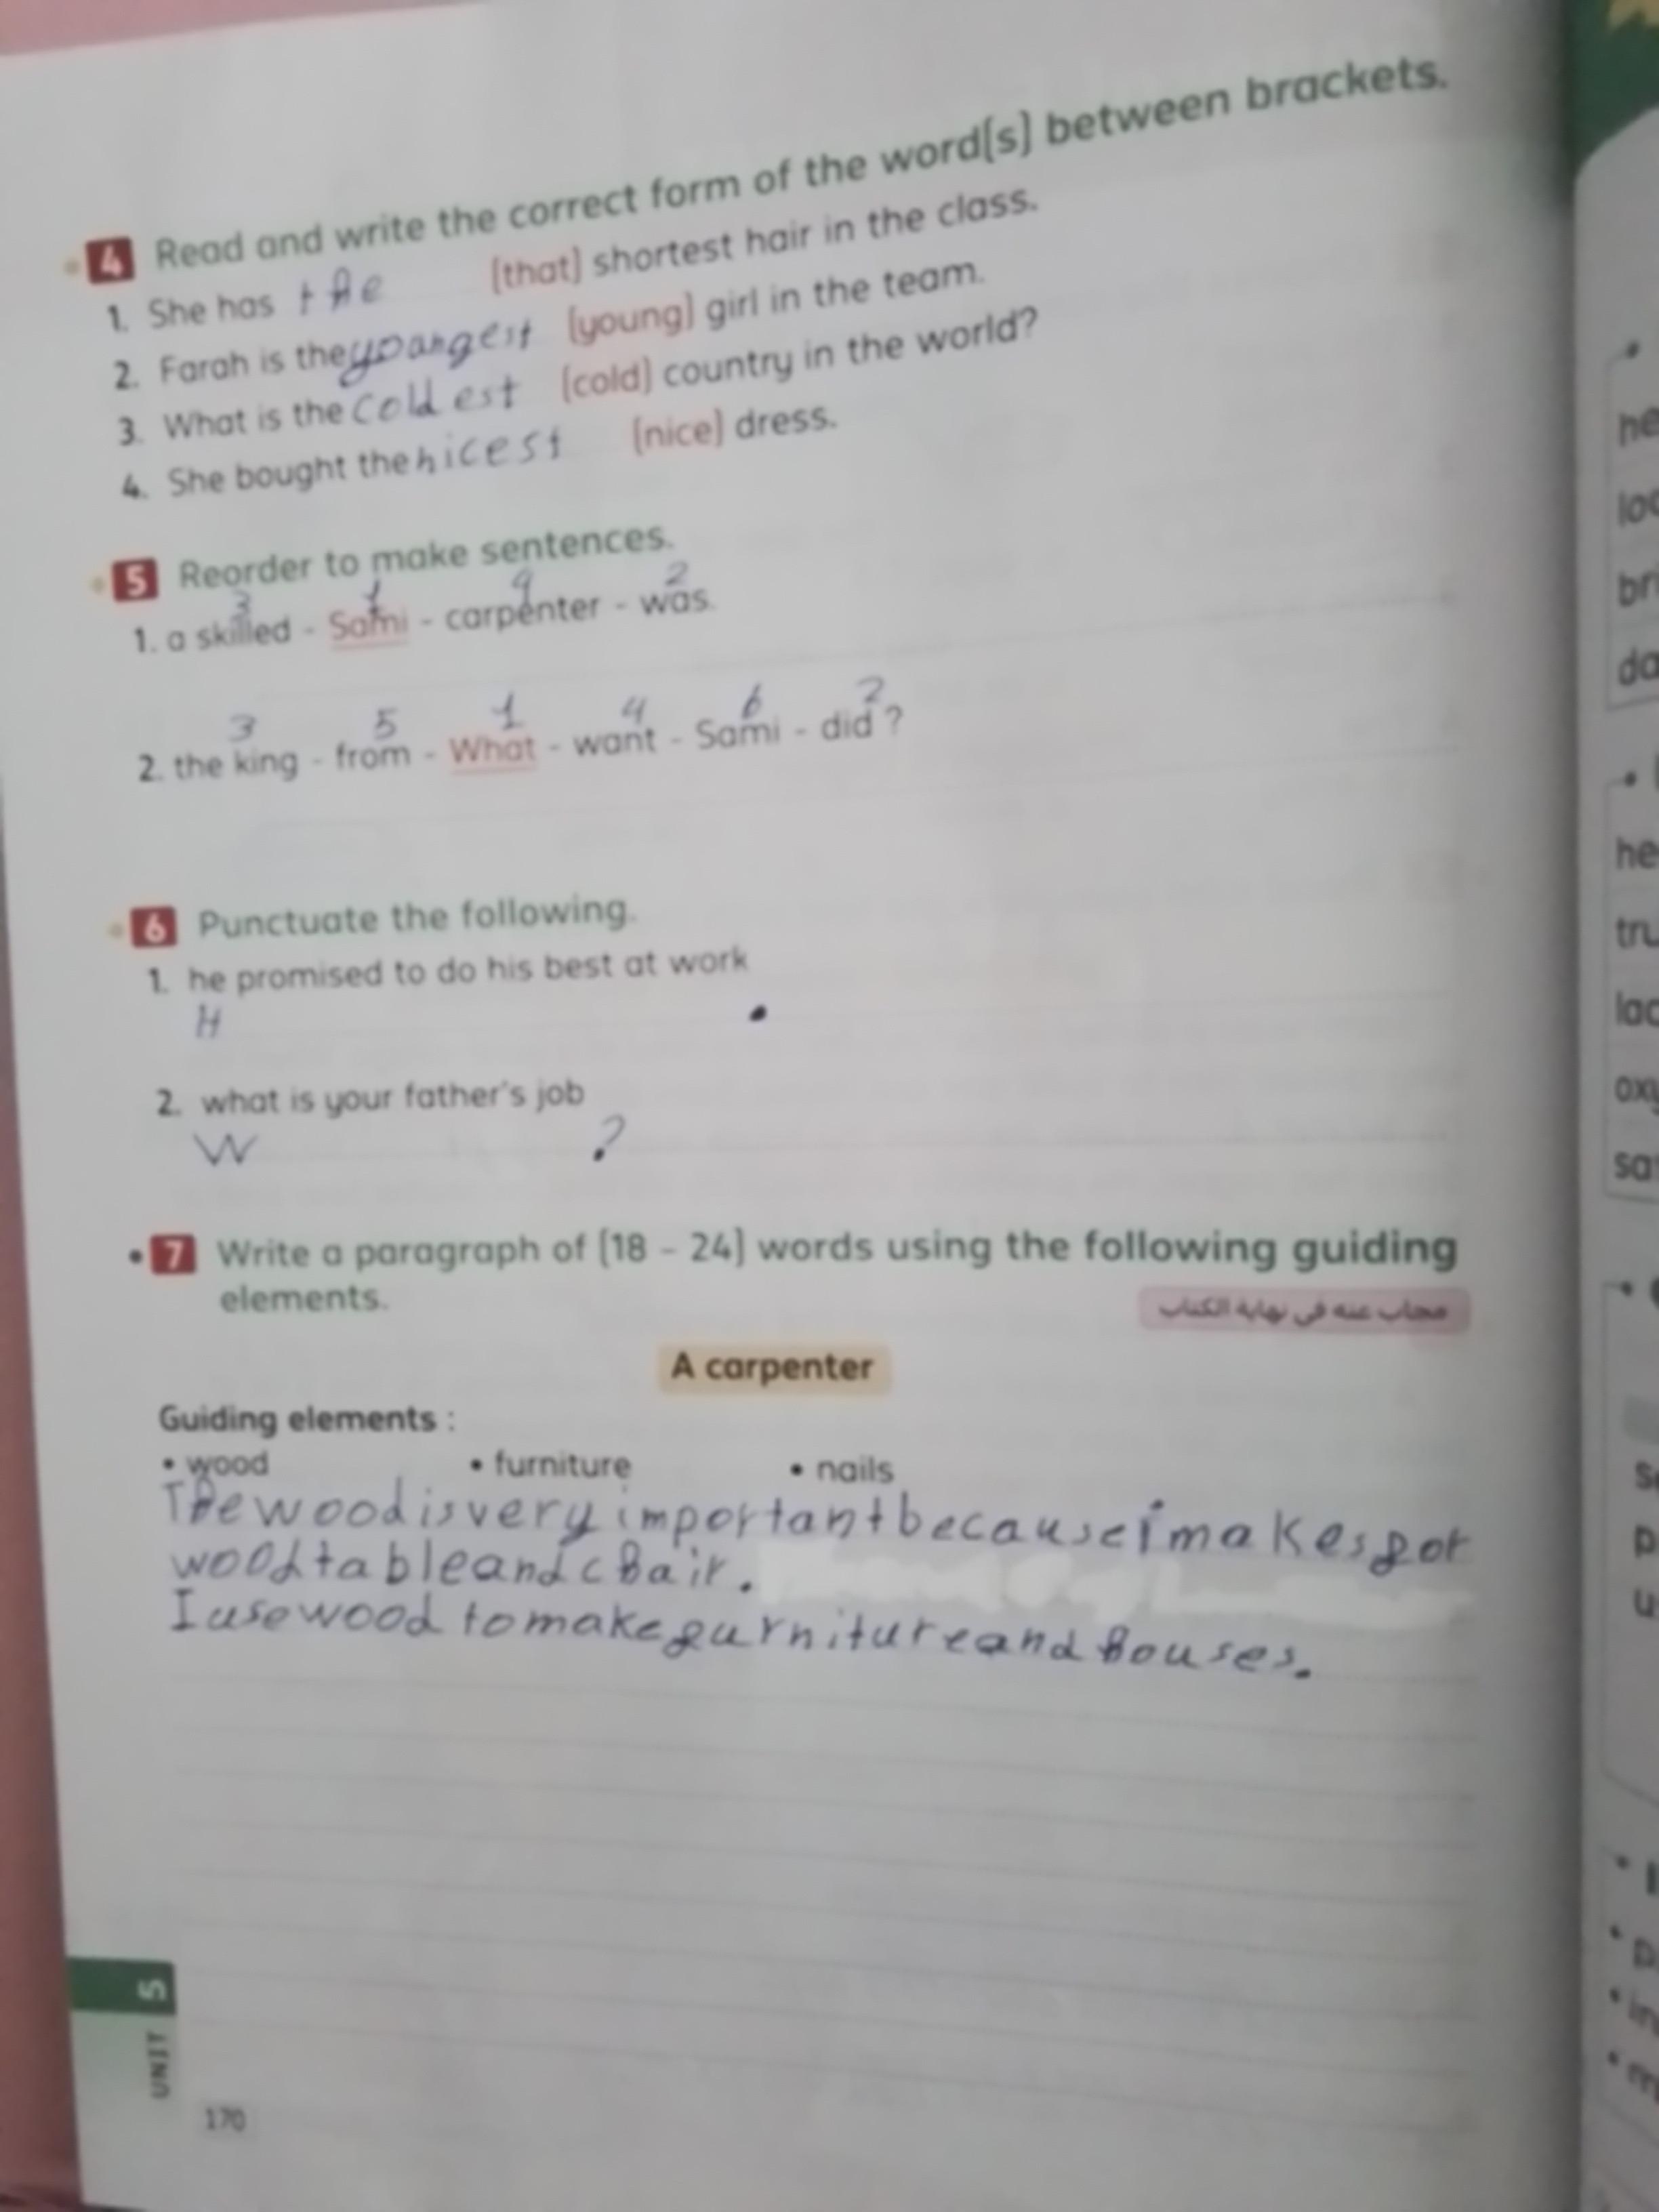 4 Read and write the correct form of the word[s] between brackets.
1. She has the [that] shortest hair in the class.
2. Farah is the youngest [young] girl in the team.
3. What is the coldest [cold] country in the world?
4. She bought the nicest [nice] dress.
5 Reorder to make sentences.
3 1 4 2
1. a skilled - Sami - carpenter - was.
3 5 1 4 6 2
2. the king - from - What - want - Sami - did ?
6 Punctuate the following.
1. he promised to do his best at work
H .
2. what is your father's job
W ?
7 Write a paragraph of [18 – 24] words using the following guiding
elements.
مجاب عنه في نهاية الكتاب
A carpenter
Guiding elements :
• wood • furniture • nails
The wood is very important because i makes for
wood table and chair.
I use wood to make furniture and houses.
UNIT 5
170
he